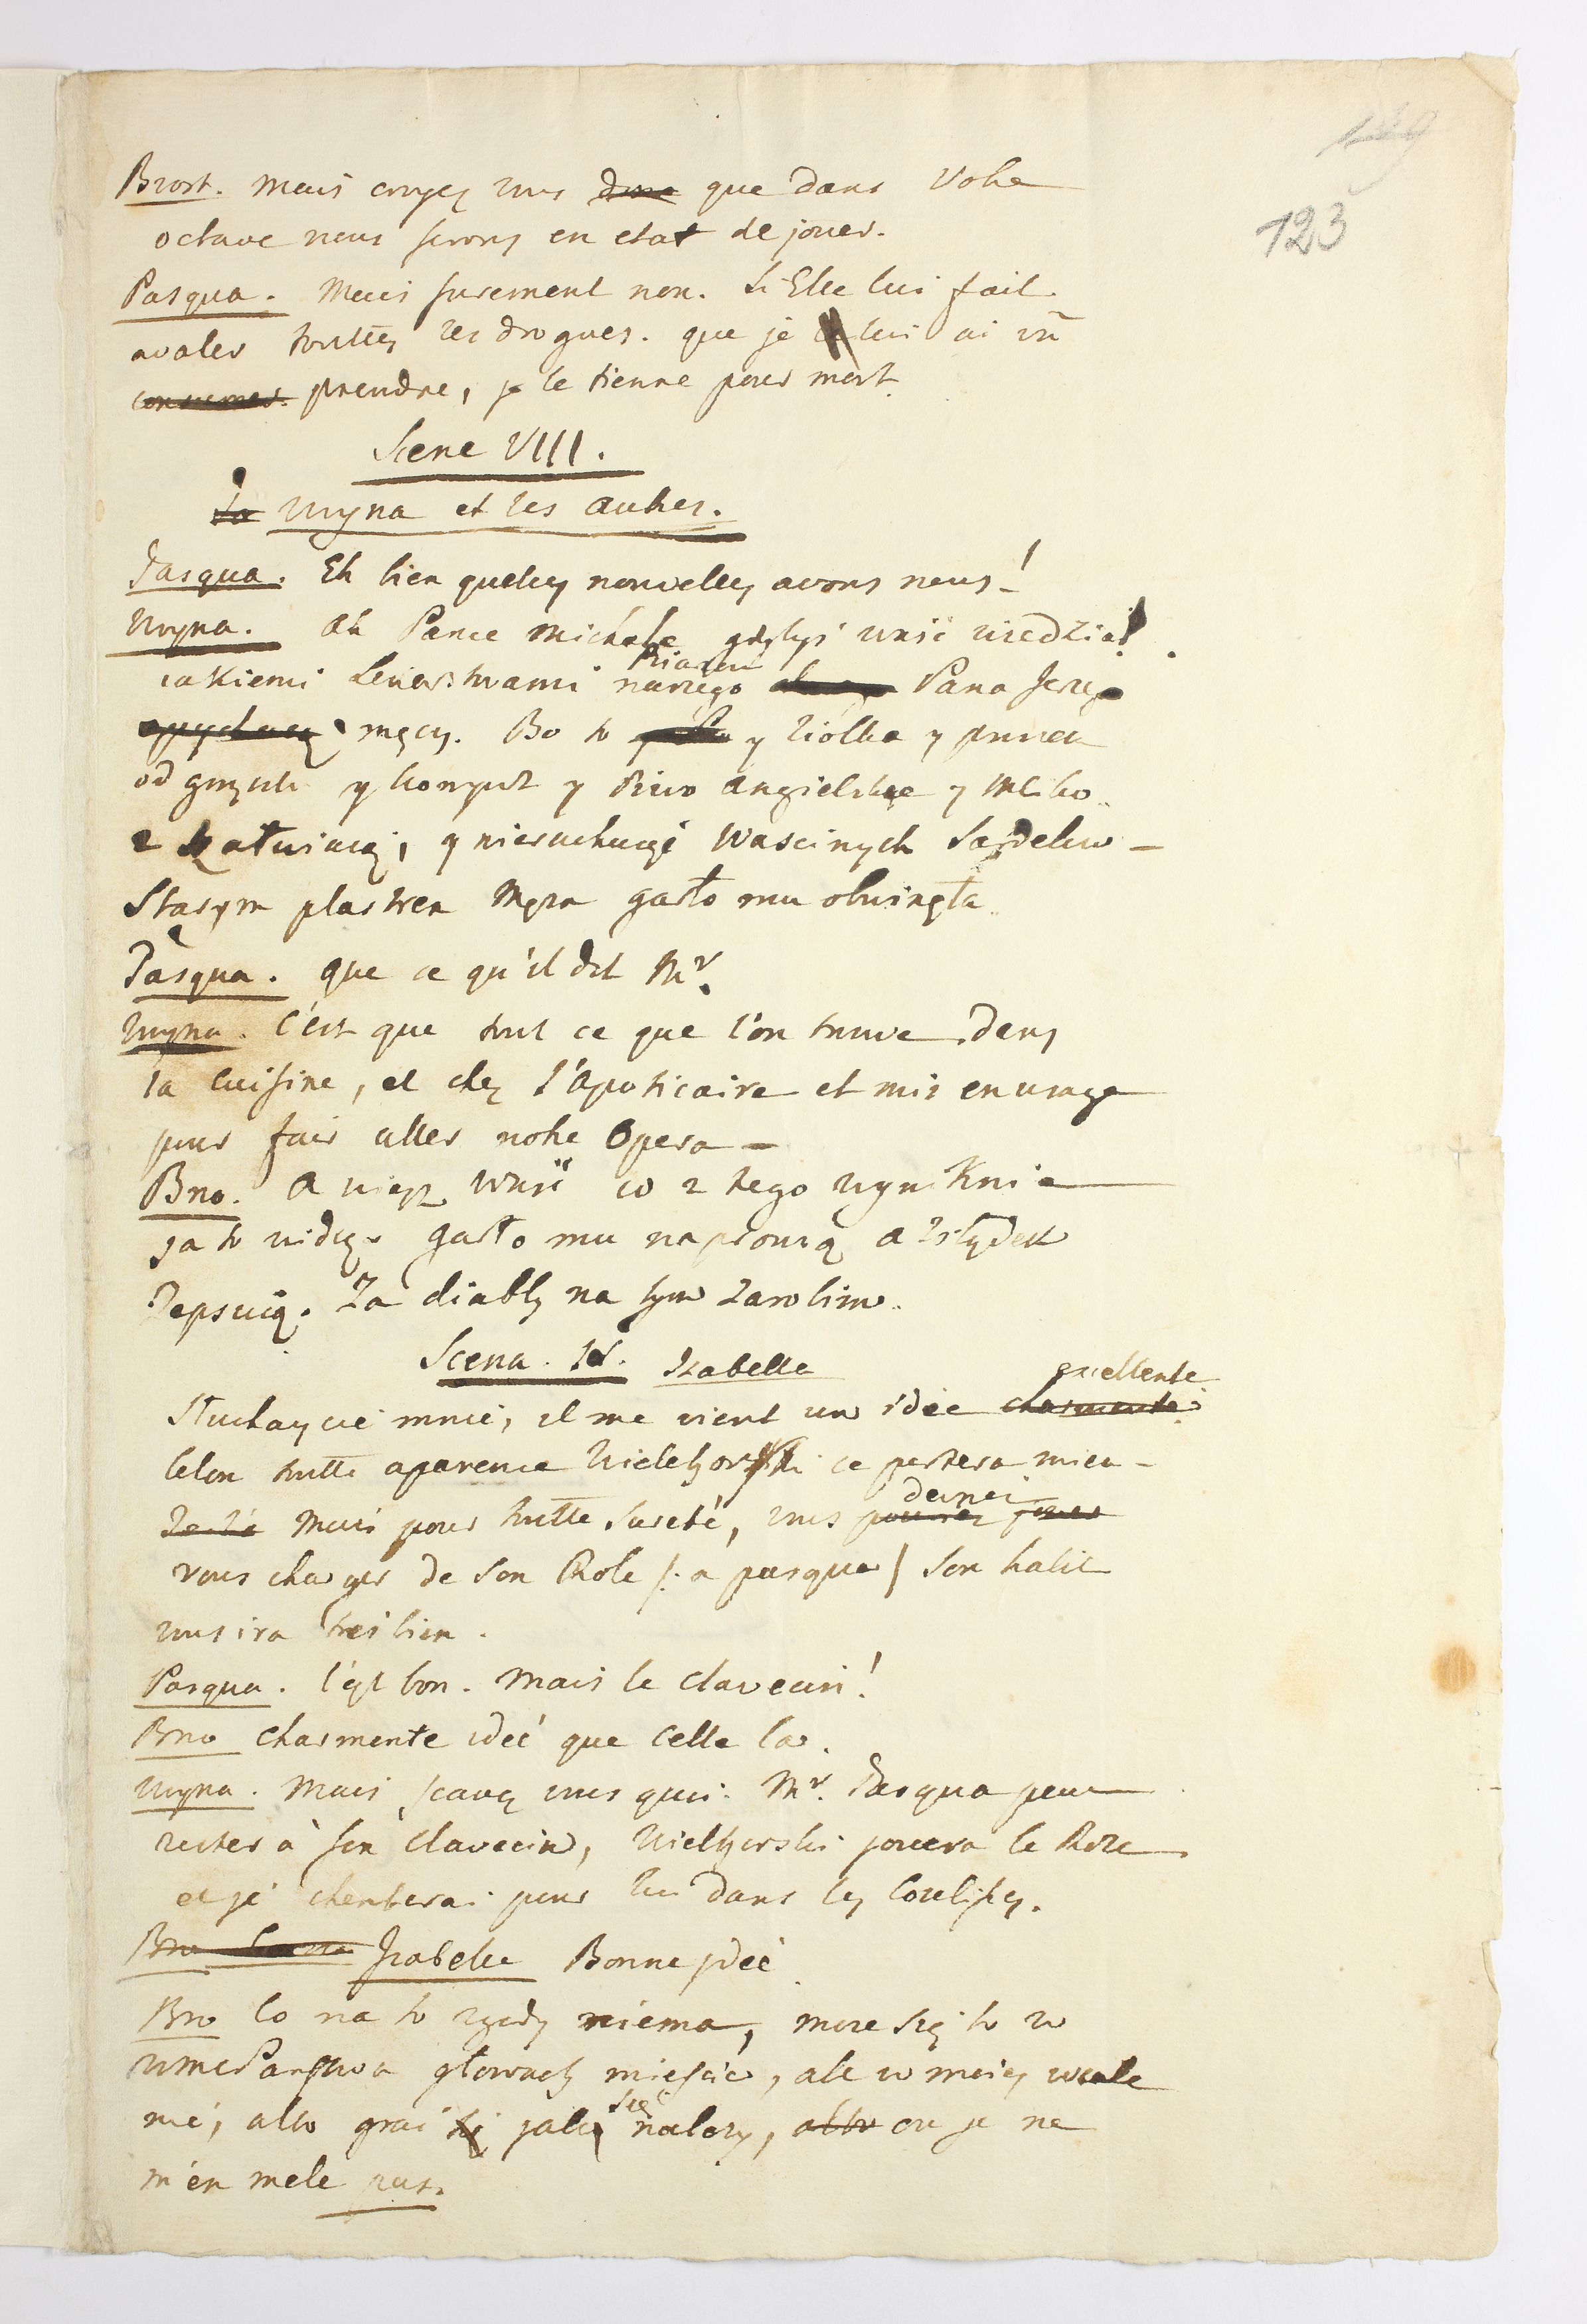 149
123
Brost. Mais croyez vous donc que dans Votre
octave nous serons en etat de jouer.
Pasqua. Mais surement non. Si Elle lui fait
avaler touttes les drogues. que je lui ai vû
consumer prendre, je le tienne pour mort.
Scene VIII.
La Uryna et les autres.
Pasqua. Eh bien quelles nouvelles avons nous!
Uryna. Ah Panie Michale gdybys waść wiedział
iakiemi Lekarstwami naszego Pana Jerzego
męczą. Bo to y Ziolka y
y y Piwo angielskie y Mleko
z Sałwiaią, y nierachuiąc Wascinych Sardelow _
Starym plastrem gardło mu obwinęła
Pasqua. que ce qu'il dit Mr.
Uryna. C'est que tout ce que l'on trouve dans
la Cuisine, et chez l'Apoticaire et mis en usage
pour fair aller notre Opera _
Bro. A wiesz Waść co z tego wyniknie
ja to widzę. gardło mu naprowią a Żołądek
Zepsuią. Za diabła na tym Zarobim.
Scena. IX. Izabella
excellente
Słuchaycie mnie, il me vient un idée charmente
Selon toutte aparence Wielhorski ce portera mieu _
devriez
Mais pour toutte sureté, vous pouriez jouer
vous charger de son Role /: a pasqua / Son habit
vous ira tres bien.
Pasqua. C'est bon. Mais le Clavecin!
Bro Charmente idée que Celle la.
Uryna. Mais scavez vous quoi. Mr. Pasqua peu
rester à son Clavecin, Wielhorski jouera le Role
et je chenterai pour lui dans les Coulisses.
Bro Izabelle Bonne idée
Bro Co na to rady niema, może się to w
WmcPaństwa głowach mieścić, ale w moiey wcale
nie, albo grać jak się nalezy, albo ou je ne
m'en mele pas.